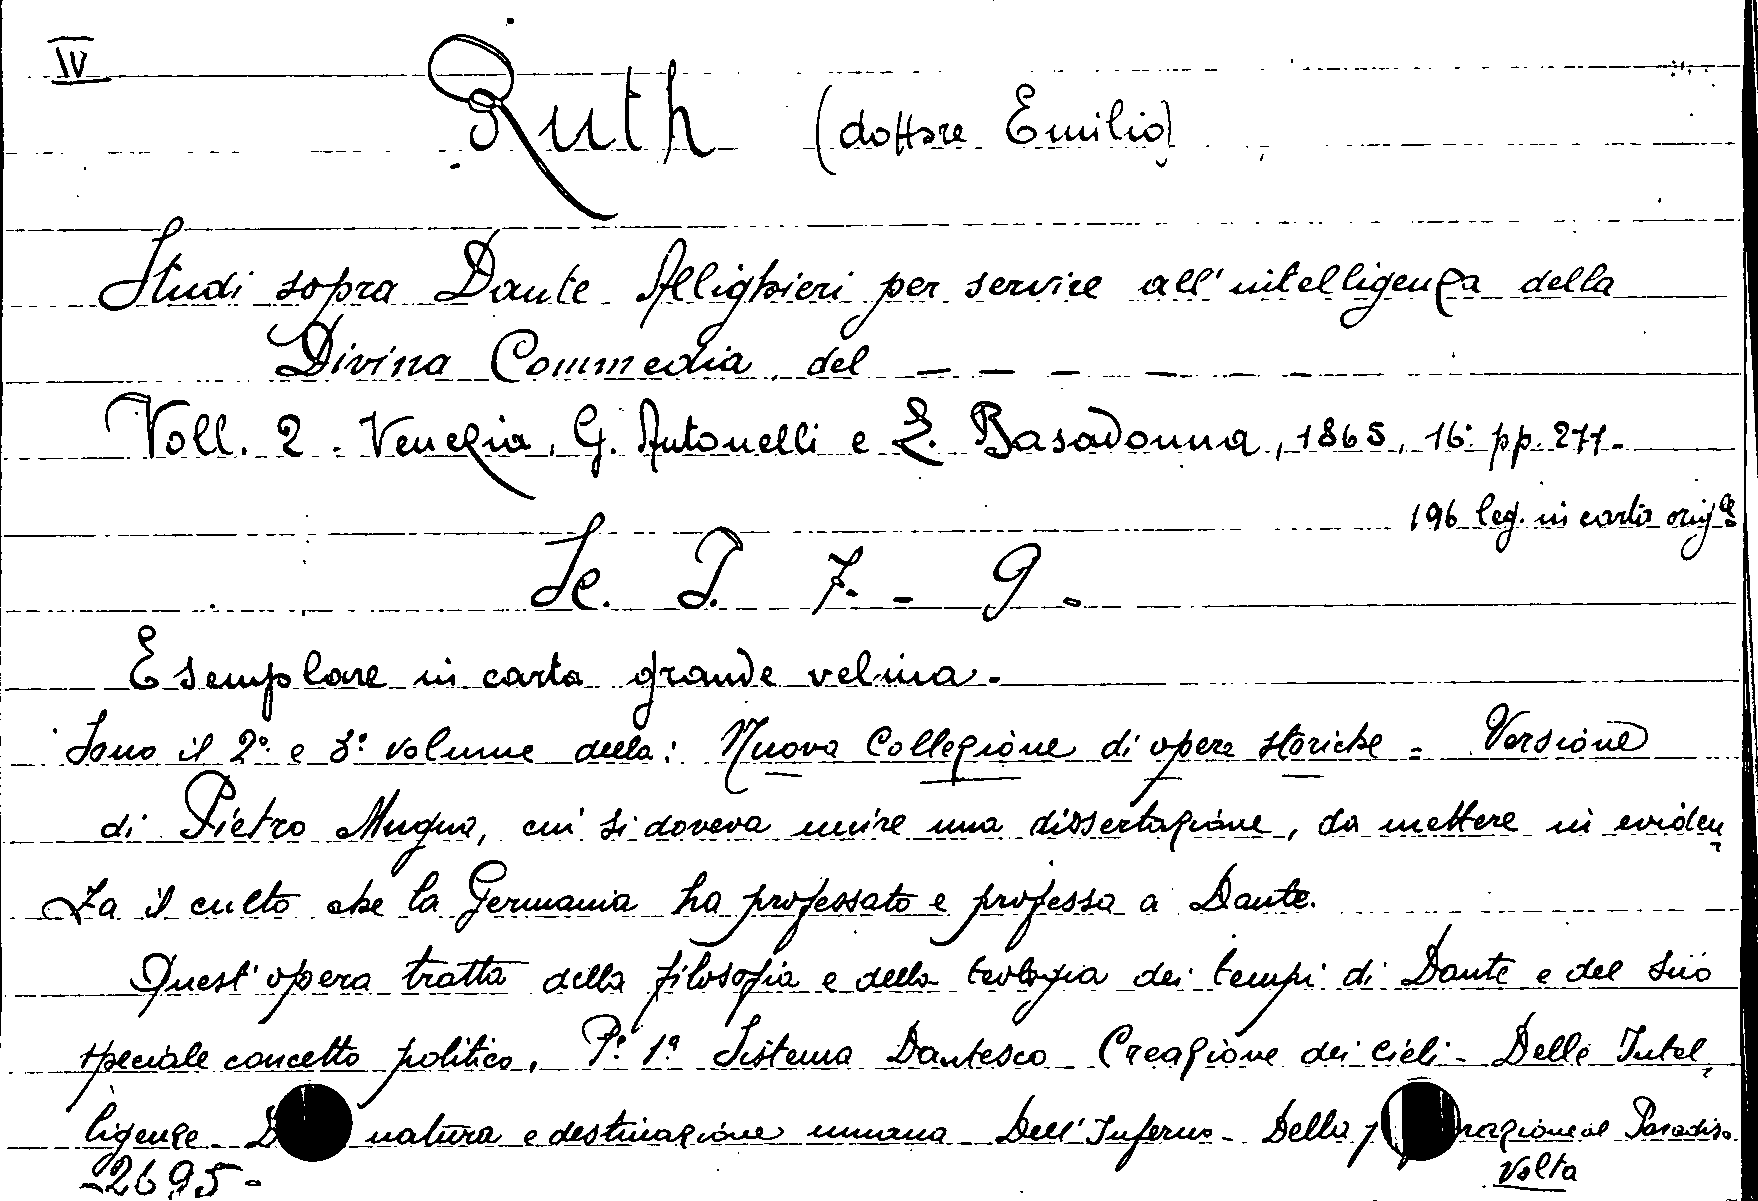 IV
Ruth (dottore Emilio)
Studi sopra Dante Allighieri per servire all'intelligenza della
Divina Commedia del — — — — — — —
Voll. 2. Venezia, G. Antonelli e L. Basadonna, 1865, 16° pp. 277-
196 leg. in carta orig.le
Sc. I. 7. - 9.
Esemplare in carta grande velina.
Sono il 2° e 3° volume della: Nuova Collezione di opere storiche = Versione
di Pietro Mugna, cui si doveva unire una dissertazione, da mettere in eviden
za il culto che la Germania ha professato e professa a Dante.
Quest'opera tratta della filosofia e della teologia dei tempi di Dante e del suo
speciale concetto politico. P.e 1a Sistema Dantesco - Creazione dei cieli - Delle Intel
ligenze - natura e destinazione umana - Dell'Inferno - Della al Paradiso
2695 -
Volta